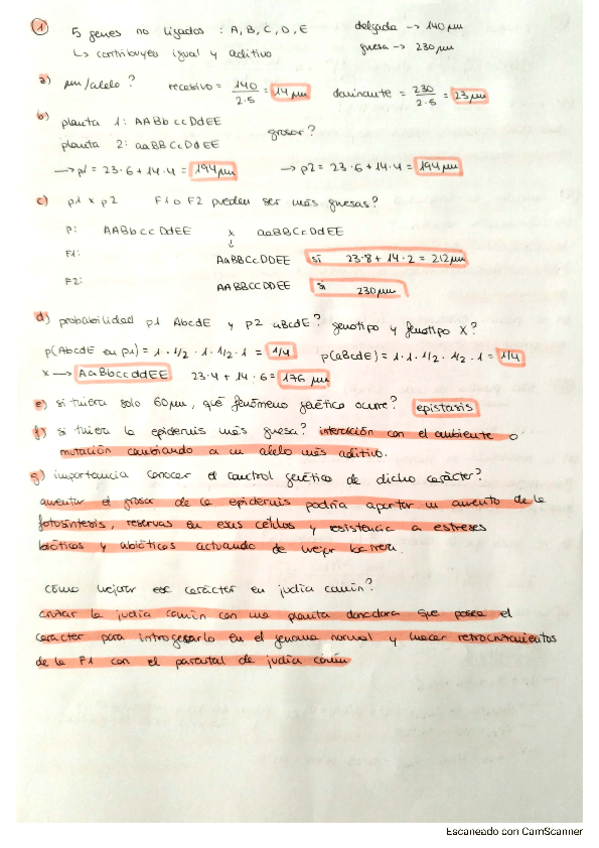 1 5 genes no ligados : A, B, C, D, E delgada --> 140 µm
↳ contribuyen igual y aditivo gruesa -> 230 µm
a) µm/alelo ? recesivo = 140/2·5 = 14 µm dominante = 230/2·5 = 23 µm
b) planta 1: AABbccDdEE grosor?
planta 2: aaBBCcDdEE
—> p1 = 23·6 + 14·4 = 194 µm —> p2 = 23·6 + 14·4 = 194 µm
c) p1 x p2 F1 o F2 pueden ser más gruesas?
P: AABbccDdEE x aaBBCcDdEE
↓
F1: AaBBCcDDEE sí 23·8 + 14·2 = 212 µm
F2: AABBCCDDEE sí 230 µm
d) probabilidad p1 AbcdE y p2 aBcdE? genotipo y fenotipo X?
p(AbcdE en p1) = 1 · 1/2 · 1 · 1/2 · 1 = 1/4 p(aBcdE) = 1 · 1 · 1/2 · 1/2 · 1 = 1/4
x —> AaBbccddEE 23·4 + 14·6 = 176 µm
e) si tuviera solo 60µm, qué fenómeno genético ocurre? epistasis
f) si tuviera la epidermis más gruesa? interacción con el ambiente o
mutación cambiando a un alelo más aditivo.
g) importancia conocer el control genético de dicho carácter?
aumentar el grosor de la epidermis podría aportar un aumento de la
fotosíntesis, reservas en esas células y resistencia a estreses
bióticos y abióticos actuando de mejor barrera.
cómo mejorar ese carácter en judía común?
cruzar la judía común con una planta donadora que posea el
carácter para introgresarlo en el genoma normal y hacer retrocruzamientos
de la F1 con el parental de judía común
Escaneado con CamScanner